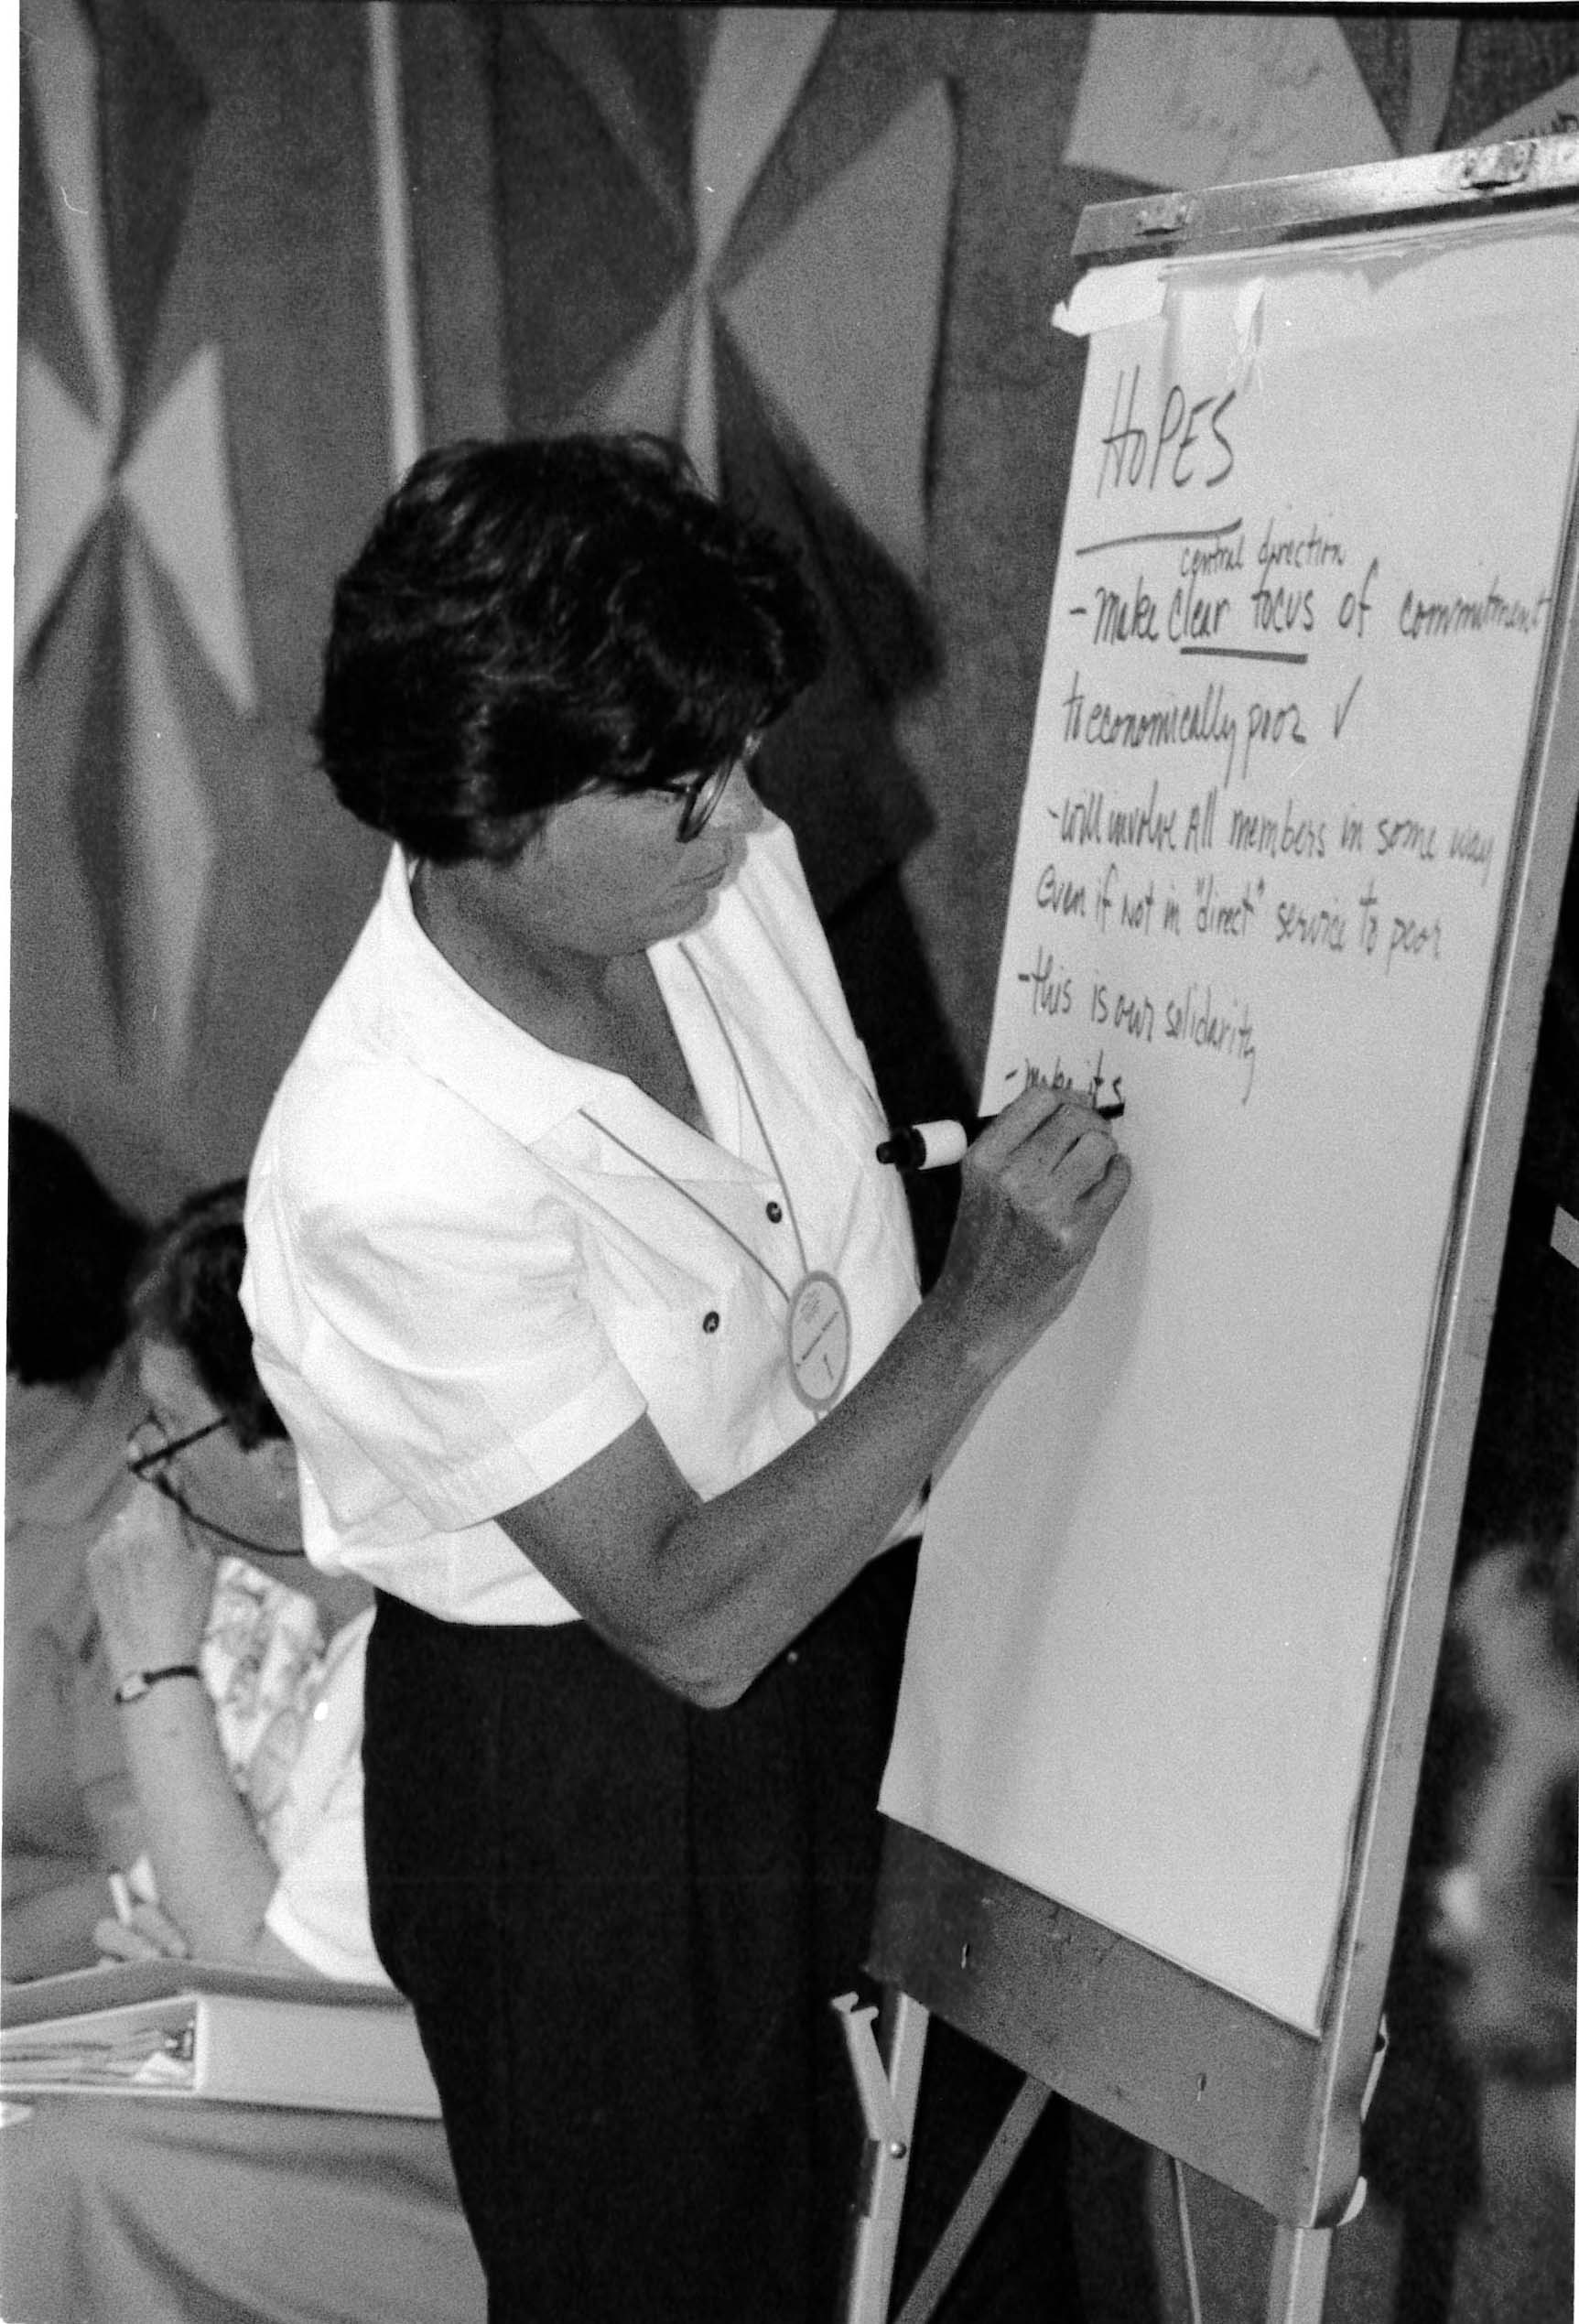 HOPES
central direction
- make clear focus of commitment
to economically poor ✓
- will involve All members in some way
even if not in "direct" service to poor
- this is our solidarity
- make it s